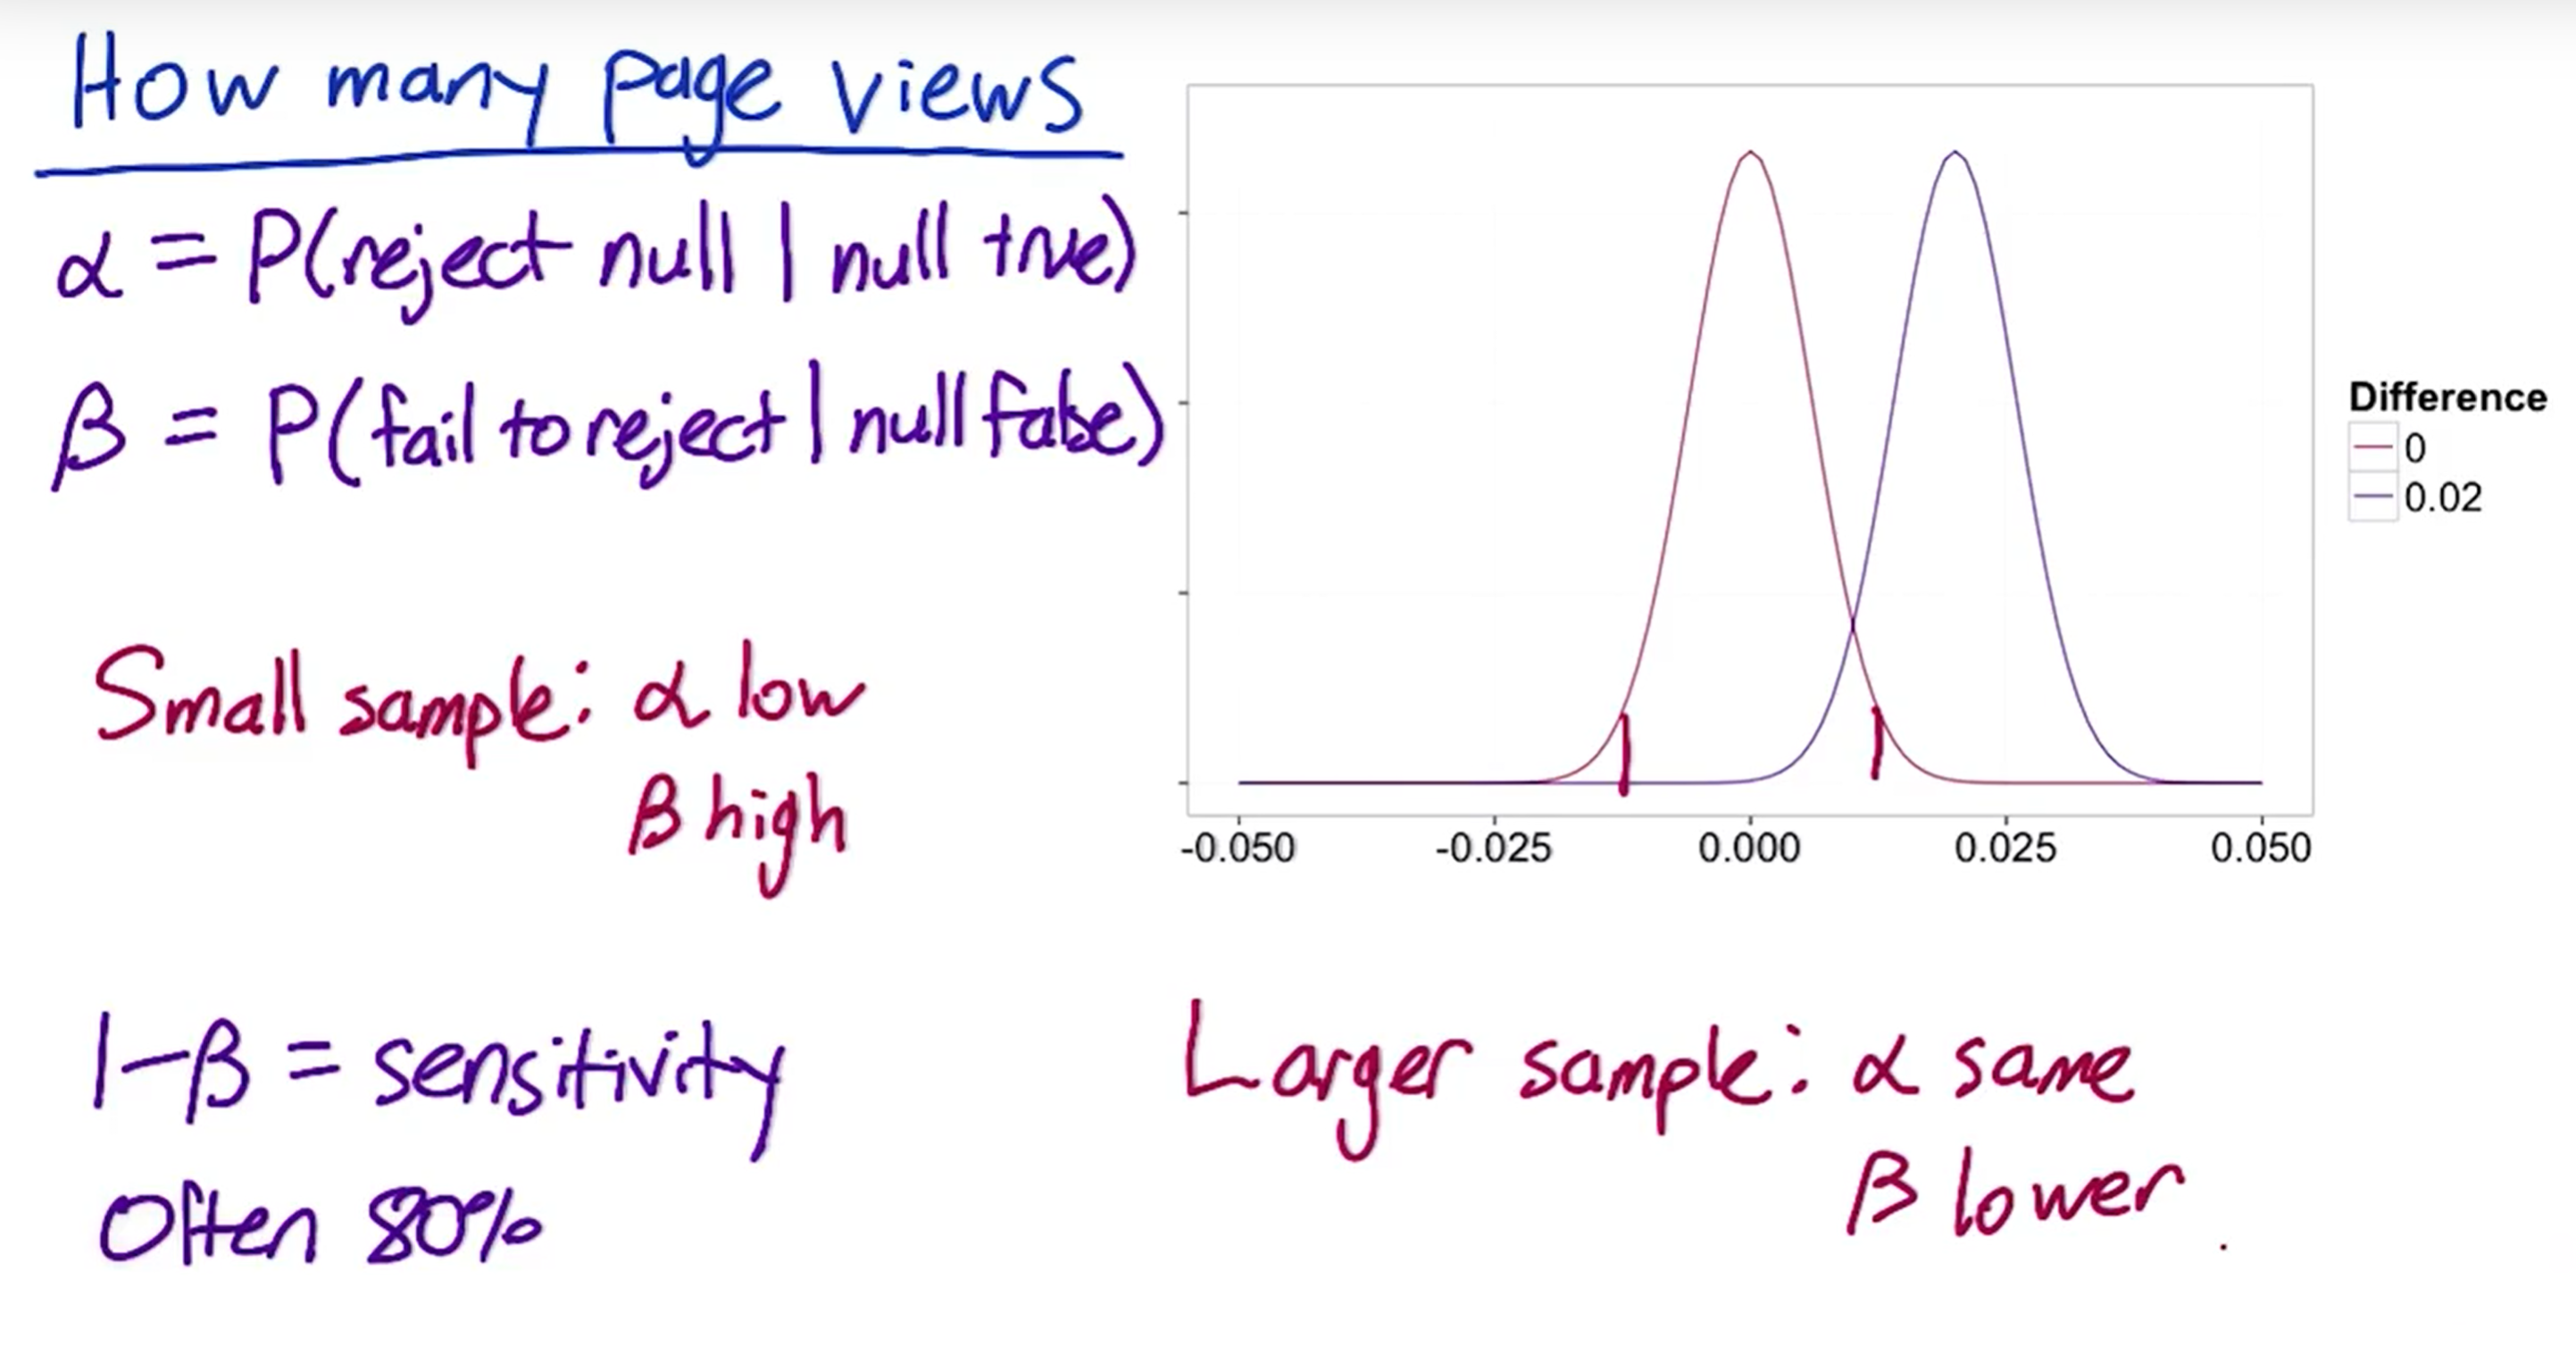 How many page views
α = P(reject null | null true)
β = P(fail to reject | null false)
Small sample: α low
β high
1-β = sensitivity
Often 80%
Difference
0
0.02
-0.050 -0.025 0.000 0.025 0.050
Larger sample: α same
β lower